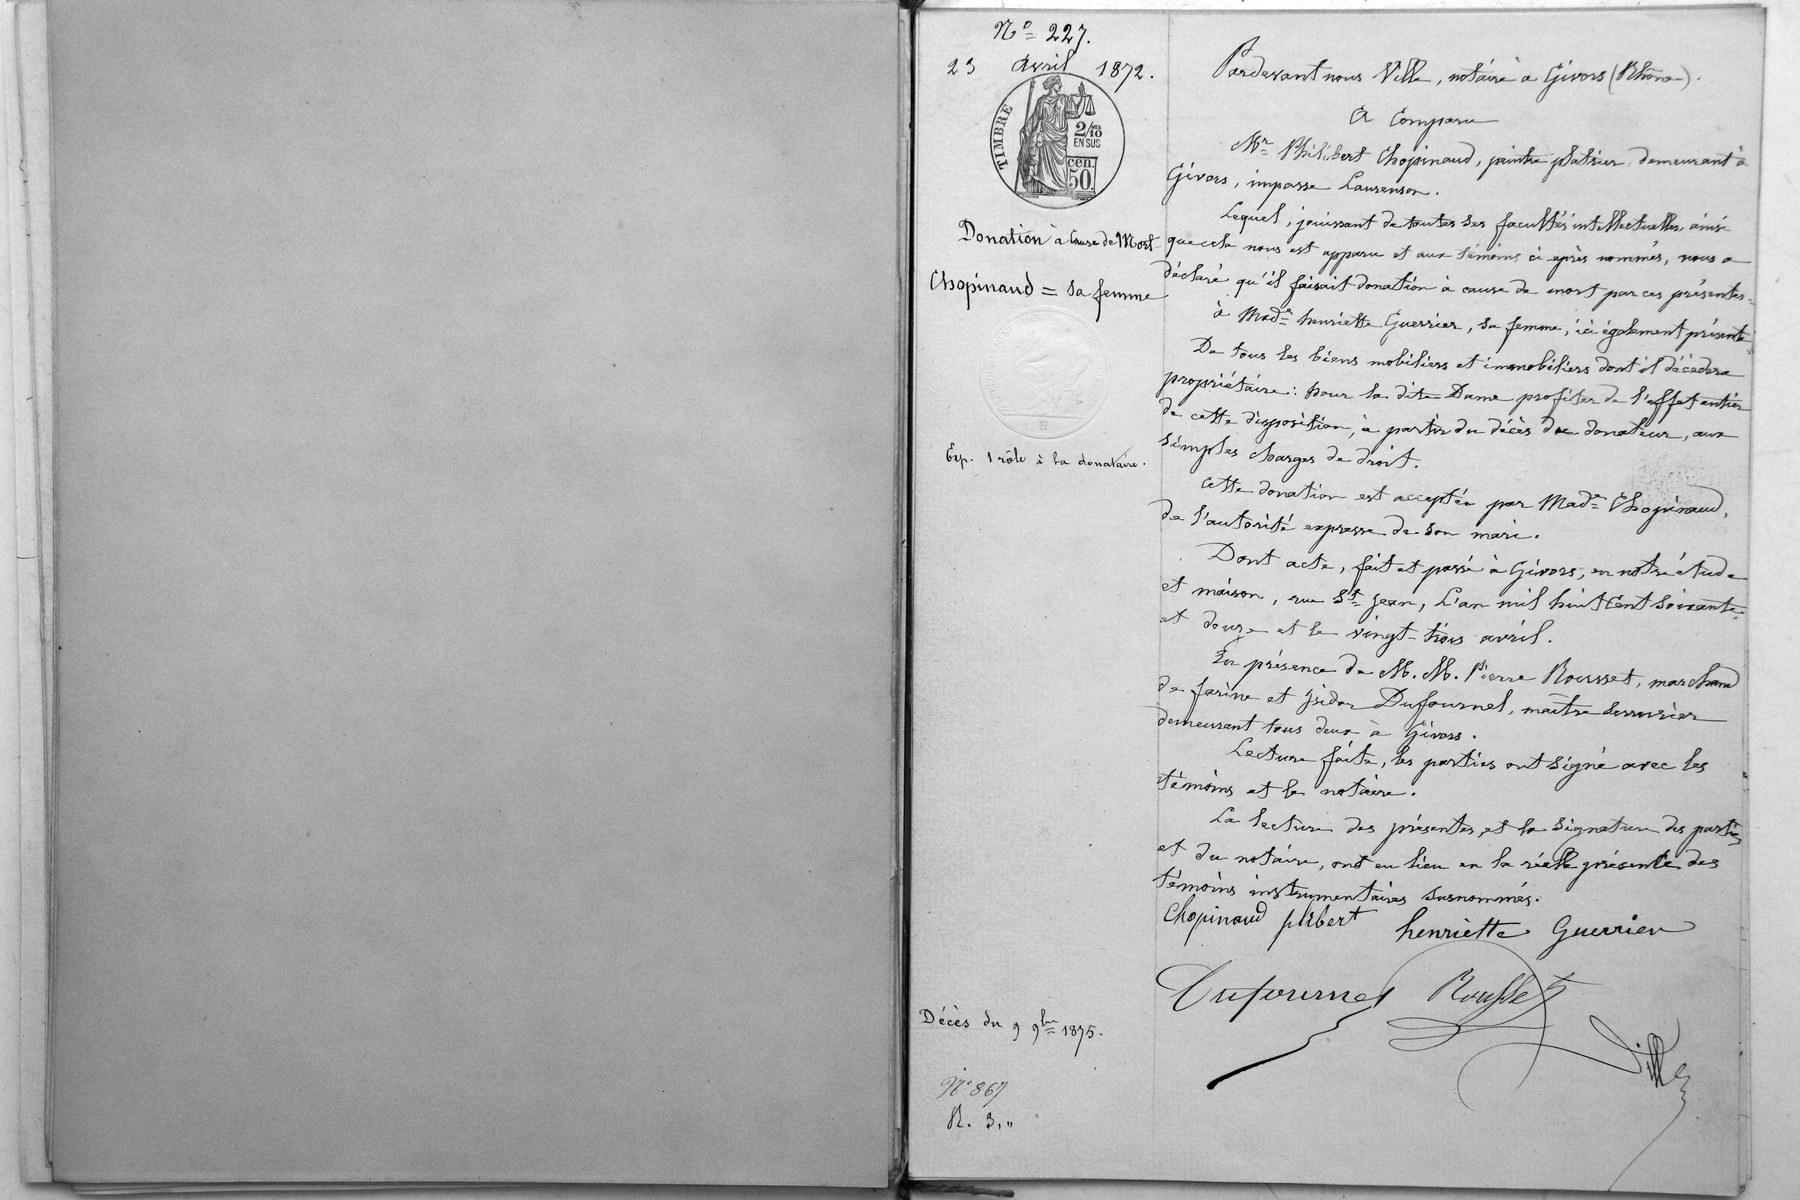 N° 227.
23 Avril 1872.
TIMBRE
2/10 EN SUS
cen. 50
Donation à Cause de Mort
Chopinaud = sa femme
Exp. 1 rôle à la donataire.
Décès du 9 9bre 1875.
N° 867
R. 3,"
Pardevant nous Ville, notaire à Givors (Rhône).
A Comparu
Mr Philibert Chopinaud, peintre plâtrier demeurant à
Givors, impasse Laurenson.
Lequel, jouissant de toutes ses facultés intellectuelles, ainsi
que cela nous est apparu et aux témoins ci après nommés, nous a
déclaré qu'il faisait donation à cause de mort par ces présentes
à Made henriette Guerrier, sa femme, ici également présente
De tous les biens mobiliers et immobiliers dont il décèdera
propriétaire : pour la dite Dame profiter de l'effet entier
de cette disposition, à partir du décès du donateur, aux
simples charges de droit.
Cette donation est acceptée par Made Chopinaud,
de l'autorité expresse de son mari.
Dont acte, fait et passé à Givors, en notre étude
et maison, rue St Jean, L'an mil huit Cent soixante
et douze et le vingt-trois avril.
En présence de M. M. Pierre Rousset, marchand
de farine et Isidor Dufournel, maître serrurier
demeurant tous deux à Givors.
Lecture faite, les parties ont signé avec les
témoins et le notaire.
La lecture des présentes, et la signature des parties
et du notaire, ont eu lieu en la réelle présence des
témoins instrumentaires susnommés.
Chopinaud plibert henriette Guerrier
Dufournel Rousset
Ville